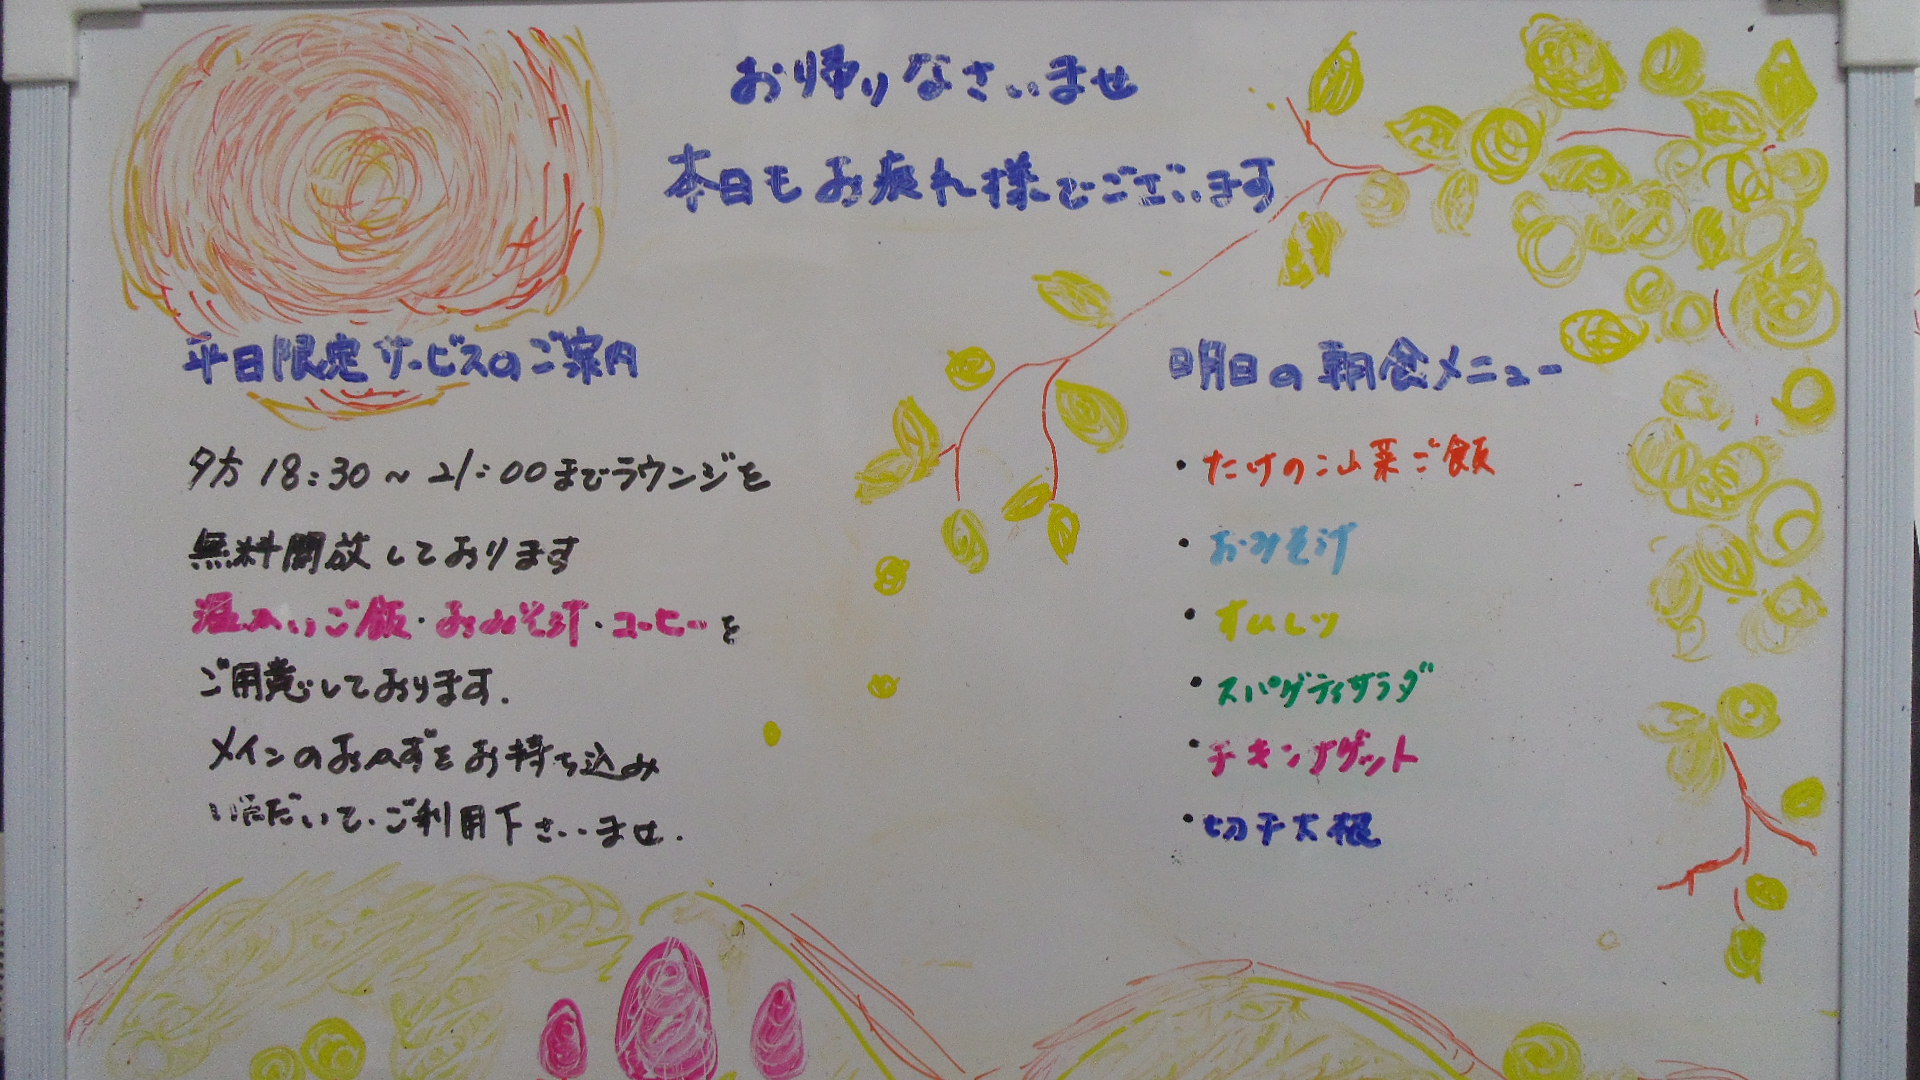 お帰りなさいませ
本日もお疲れ様でございます
平日限定サービスのご案内
夕方18:30～21:00までラウンジを
無料開放しております
温かいご飯・おみそ汁・コーヒーを
ご用意しております.
メインのおかずをお持ち込み
いただいて、ご利用下さいませ.
明日の朝食メニュー
・たけのこ山菜ご飯
・おみそ汁
・オムレツ
・スパゲティサラダ
・チキンナゲット
・切干大根